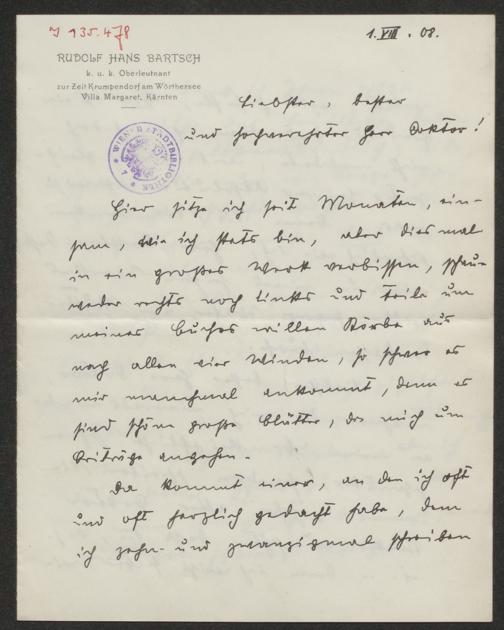 J 135.478
1. VIII. 08.
RUDOLF HANS BARTSCH
k. u. k. Oberleutnant
zur Zeit Krumpendorf am Wörthersee
Villa Margaret, Kärnten
Liebster, bester
und hochverehrter Herr Doktor!
WIENER STADTBIBLIOTHEK
Hier sitze ich seit Monaten, ein-
sam, wie ich stets bin, aber diesmal
in ein großes Werk verbissen, schau
weder rechts noch links und teile um
meines Buches willen Körbe aus
nach allen vier Winden, so schwer es
mir manchmal ankommt, denn es
sind schöne große Blätter, die mich um
Beiträge angehen.
Da kommt einer, an den ich oft
und oft herzlich gedacht habe, dem
ich zehn- und zwanzigmal schreiben